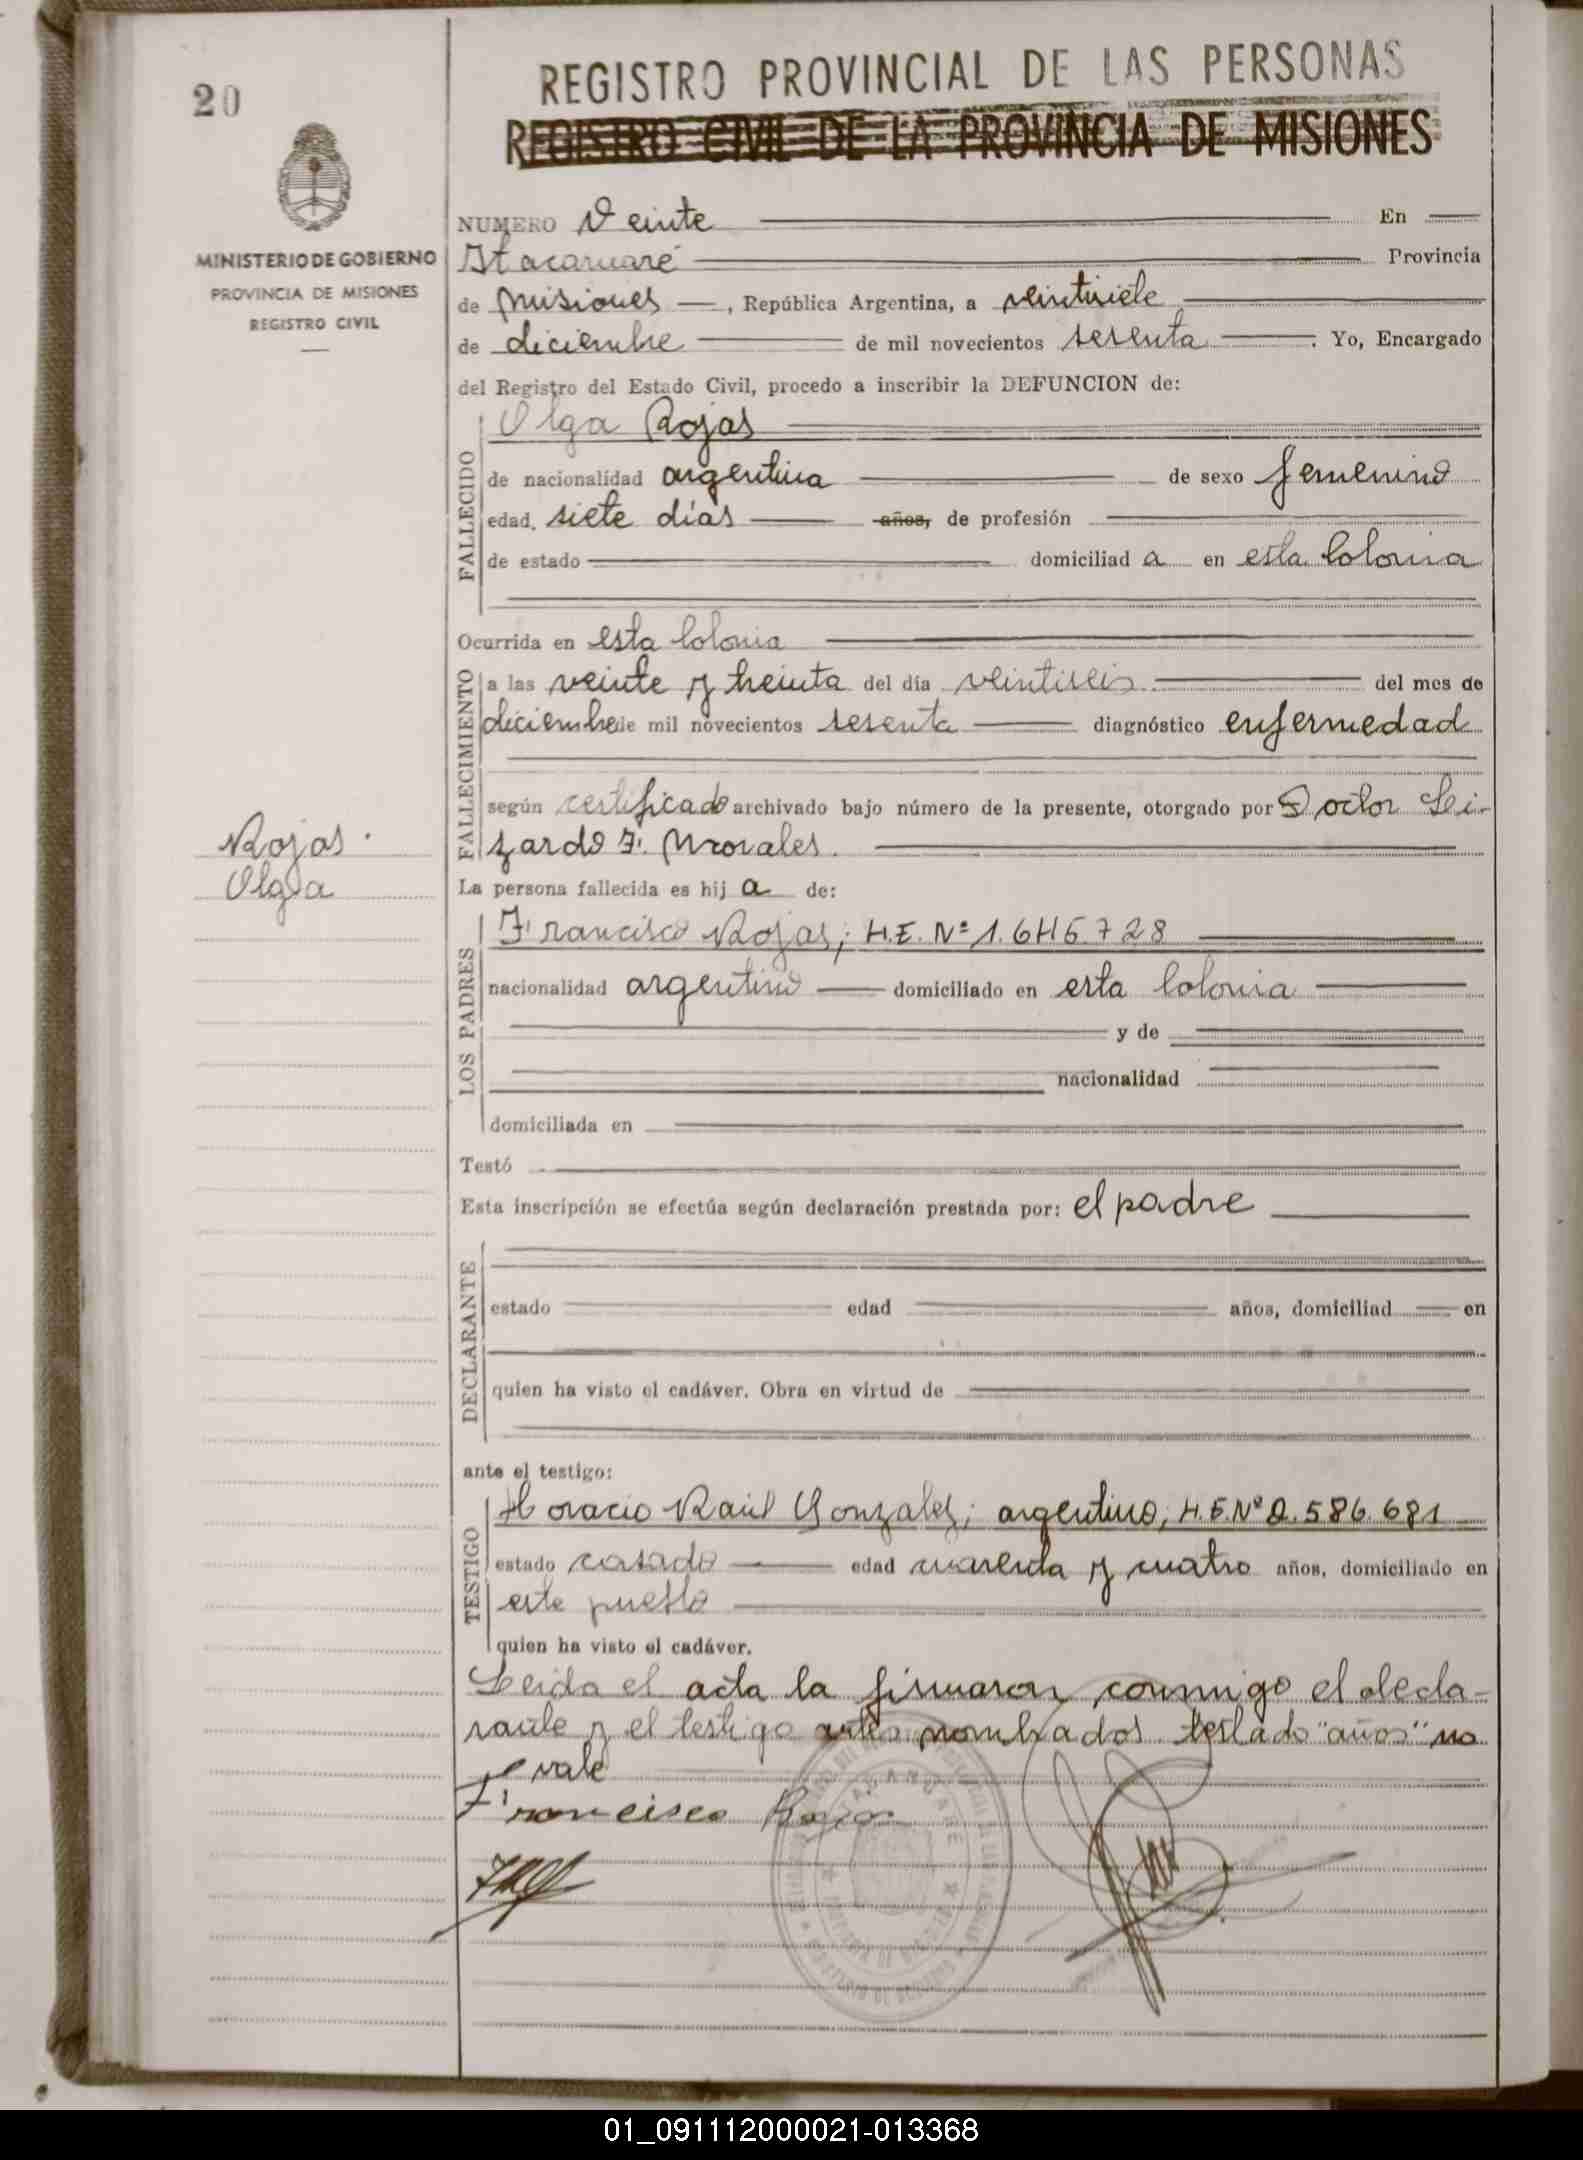 20
REGISTRO PROVINCIAL DE LAS PERSONAS
REGISTRO CIVIL DE LA PROVINCIA DE MISIONES
MINISTERIO DE GOBIERNO
PROVINCIA DE MISIONES
REGISTRO CIVIL
NUMERO Veinte En
Itacaruaré Provincia
de Misiones, República Argentina, a veintisiete
de diciembre de mil novecientos sesenta. Yo, Encargado
del Registro del Estado Civil, procedo a inscribir la DEFUNCION de:
FALLECIDO
Olga Rojas
de nacionalidad argentina de sexo femenino
edad, siete días años, de profesión
de estado domiciliad a en esta Colonia
Ocurrida en esta Colonia
FALLECIMIENTO
a las veinte y treinta del día veintiseis del mes de
diciembre de mil novecientos sesenta diagnóstico enfermedad
según certificado archivado bajo número de la presente, otorgado por Doctor Li-
zardo F. Morales.
Rojas.
Olga
La persona fallecida es hij a de:
LOS PADRES
Francisco Rojas; M.E. Nº 1.645.728
nacionalidad argentino domiciliado en esta Colonia
y de
nacionalidad
domiciliada en
Testó
Esta inscripción se efectúa según declaración prestada por: el padre
DECLARANTE
estado edad años, domiciliad en
quien ha visto el cadáver. Obra en virtud de
ante el testigo:
TESTIGO
Horacio Raúl Gonzalez; argentino; M.E. Nº 2.586.681
estado casado edad cuarenta y cuatro años, domiciliado en
este pueblo
quien ha visto el cadáver.
Leida el acta la firmaron conmigo el decla-
rante y el testigo antes nombrados. testado "años" no
vale
Francisco Rojas
01_091112000021-013368